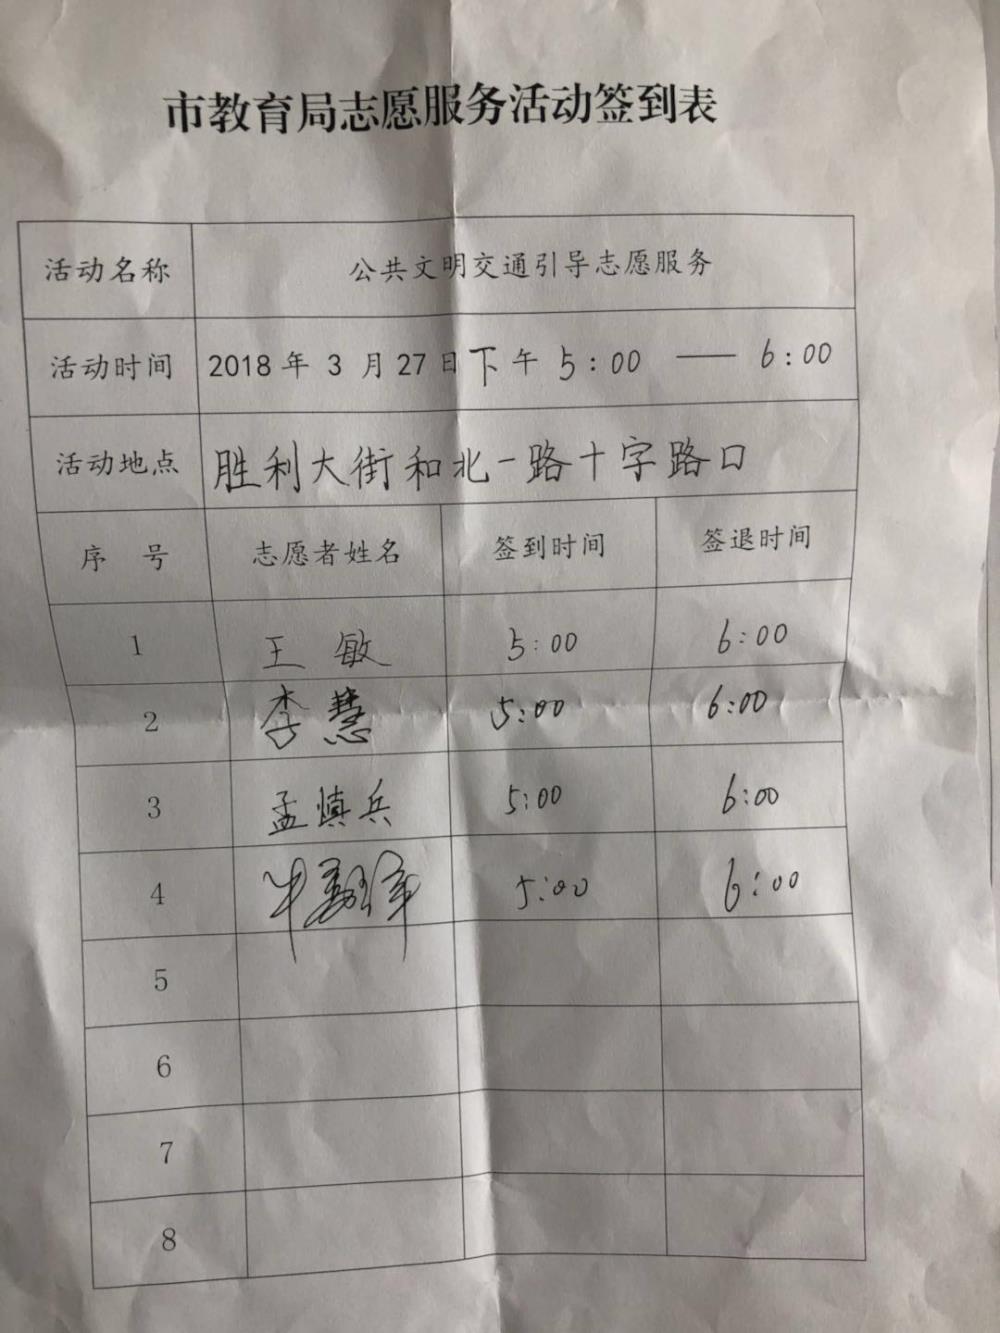 市教育局志愿服务活动签到表
活动名称 公共文明交通引导志愿服务
活动时间 2018年3月27日下午5:00——6:00
活动地点 胜利大街和北一路十字路口
序号 志愿者姓名 签到时间 签退时间
1 王敏 5:00 6:00
2 李慧 5:00 6:00
3 孟慎兵 5:00 6:00
4 牛 5:00 6:00
5
6
7
8